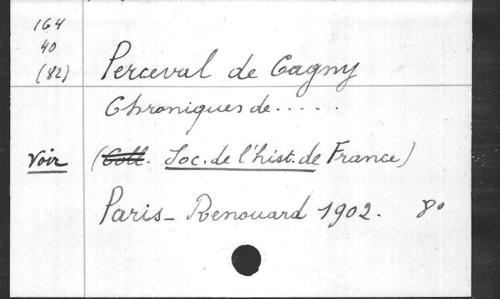 164
40
(82)
Perceval de Cagny
Chroniques de......
Voir
(Coll. Soc. de l'hist. de France)
Paris - Renouard 1902. 8°